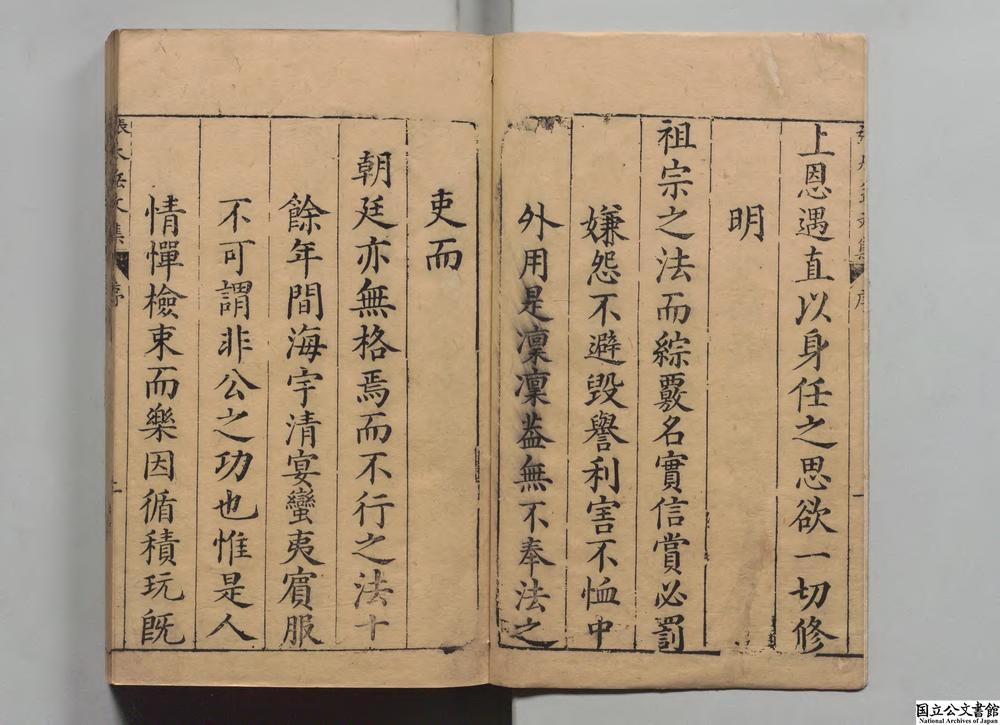 上恩遇直以身任之思欲一切修
明
祖宗之法而綜覈名實信賞必罰
嫌怨不避毀譽利害不恤中
外用是凜凜葢無不奉法之
吏而
朝廷亦無格焉而不行之法十
餘年間海宇清宴蠻夷賓服
不可謂非公之功也惟是人
情憚檢束而樂因循積玩旣
序
国立公文書館
National Archives of Japan